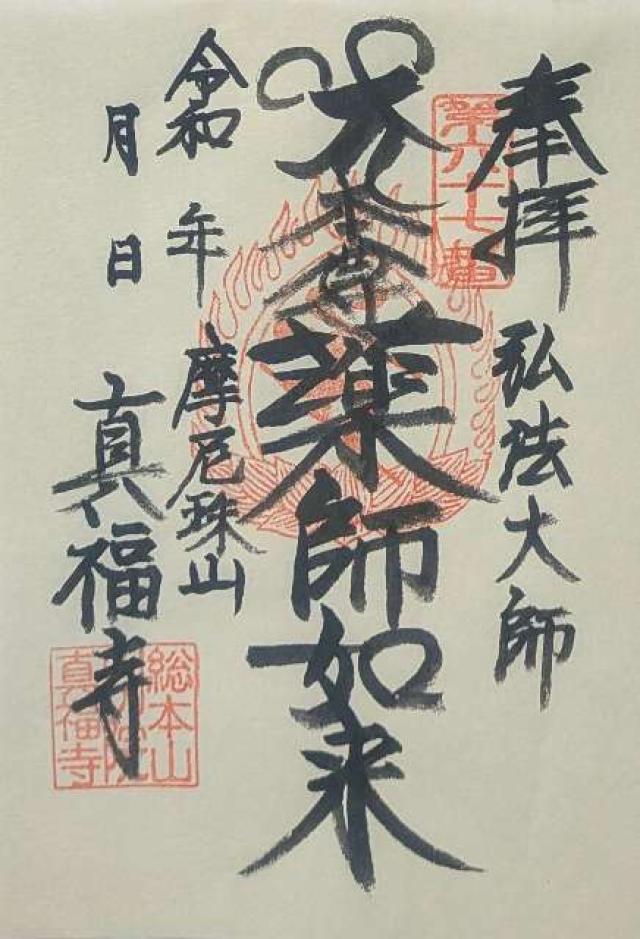 奉拝 弘法大師
第六十七番
本尊
薬師如来
令和 年 摩尼珠山
月 日 真福寺
総本山
別院
真福寺